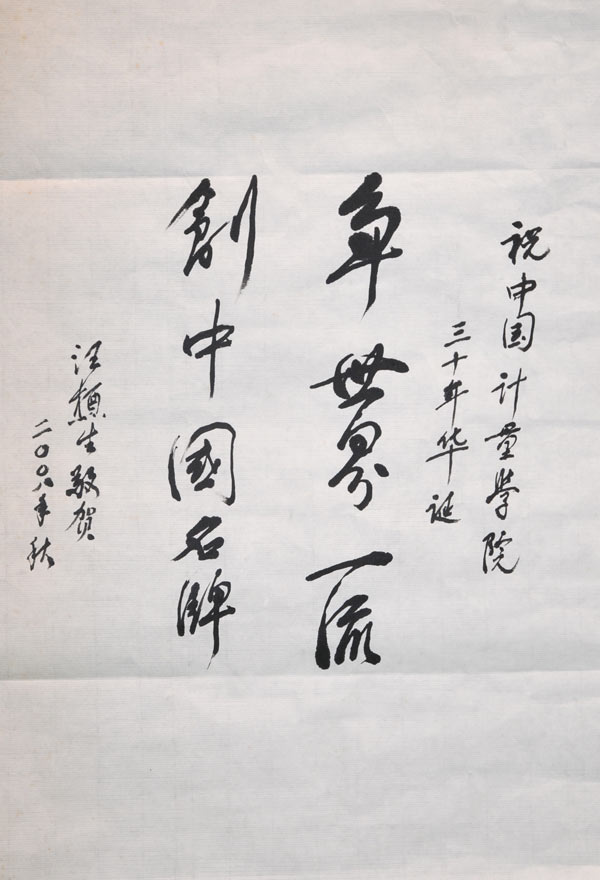 祝中国计量學院
三十年华诞
争世界一流
創中國名牌
汪槱生敬贺
二〇〇八年秋